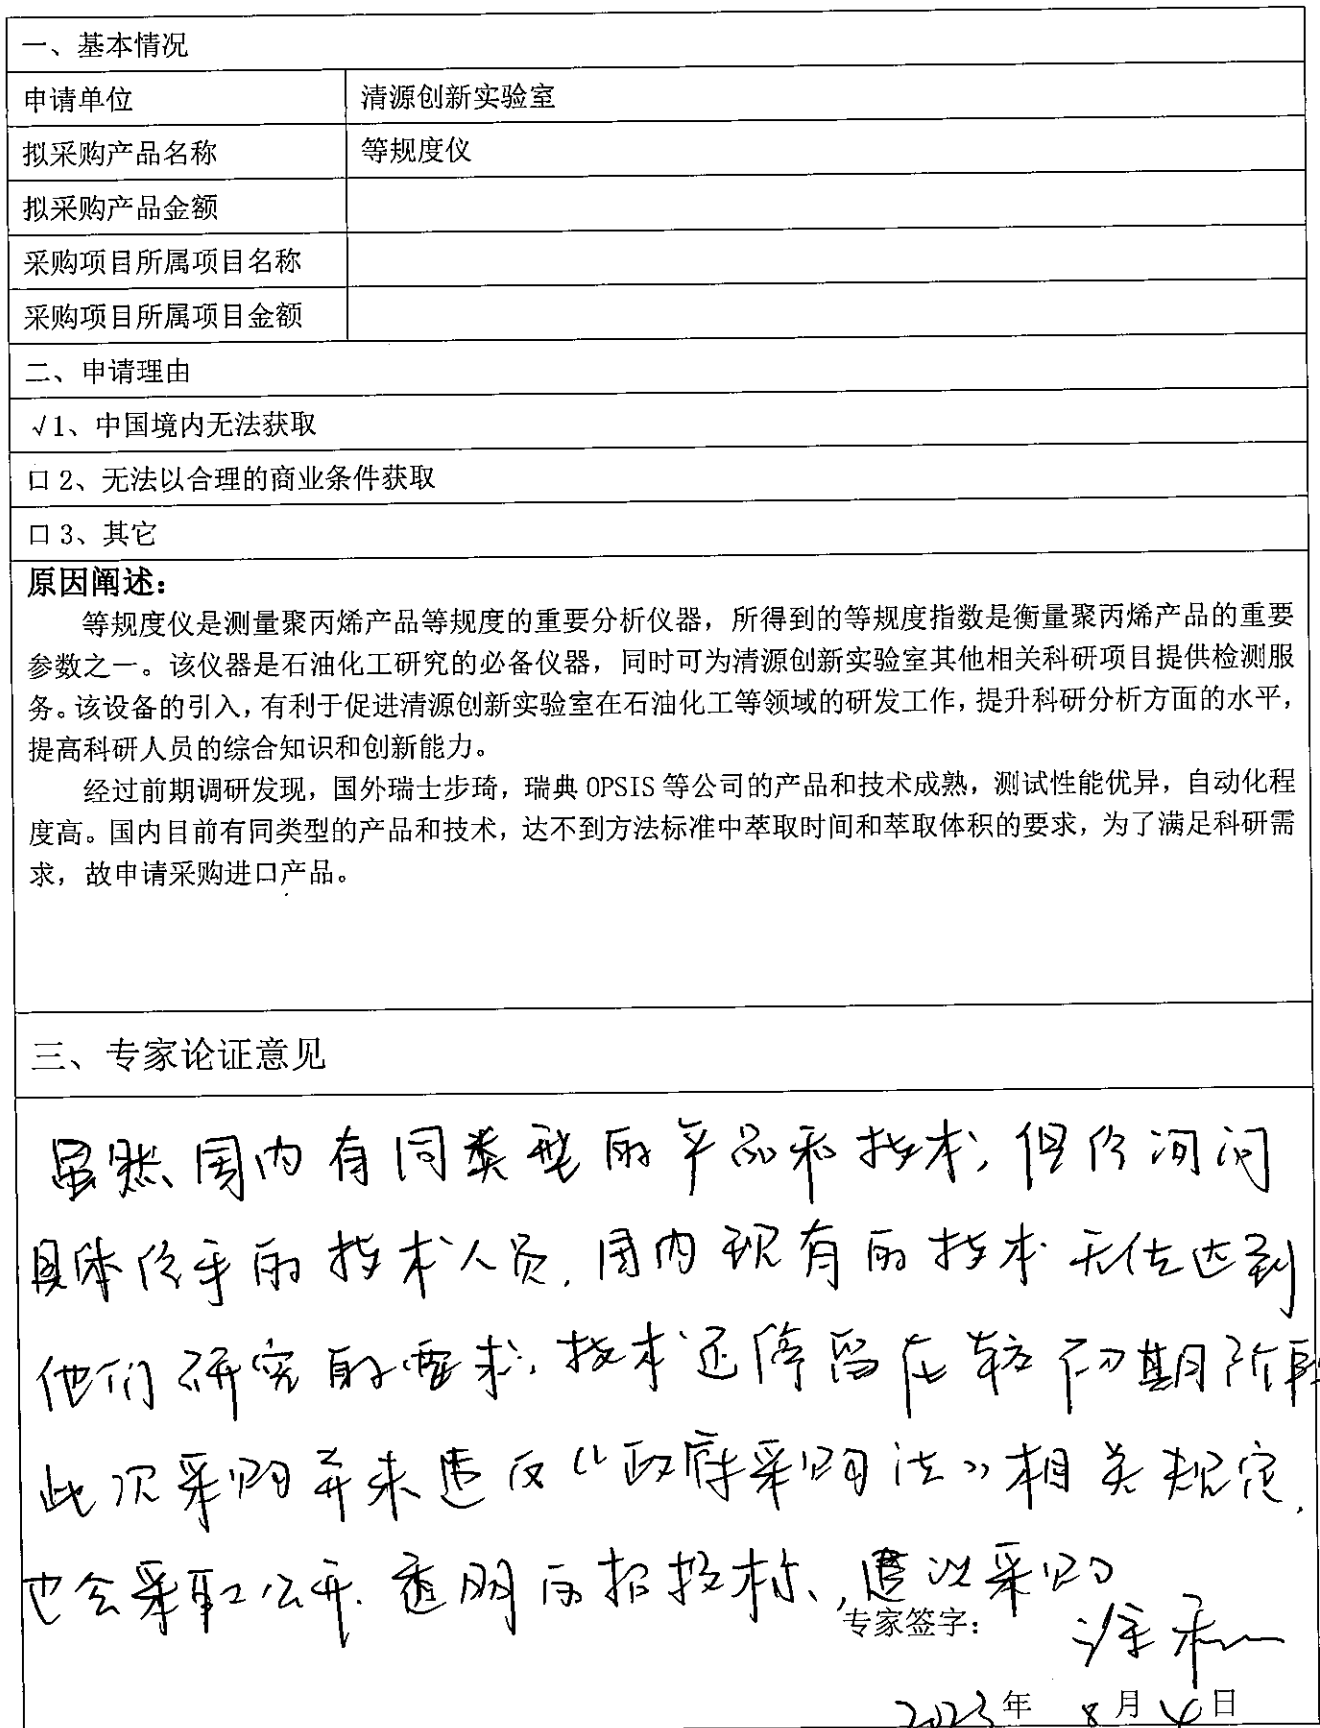 一、基本情况
申请单位 清源创新实验室
拟采购产品名称 等规度仪
拟采购产品金额
采购项目所属项目名称
采购项目所属项目金额
二、申请理由
√1、中国境内无法获取
口2、无法以合理的商业条件获取
口3、其它
原因阐述：
等规度仪是测量聚丙烯产品等规度的重要分析仪器，所得到的等规度指数是衡量聚丙烯产品的重要
参数之一。该仪器是石油化工研究的必备仪器，同时可为清源创新实验室其他相关科研项目提供检测服
务。该设备的引入，有利于促进清源创新实验室在石油化工等领域的研发工作，提升科研分析方面的水平，
提高科研人员的综合知识和创新能力。
经过前期调研发现，国外瑞士步琦，瑞典 OPSIS 等公司的产品和技术成熟，测试性能优异，自动化程
度高。国内目前有同类型的产品和技术，达不到方法标准中萃取时间和萃取体积的要求，为了满足科研需
求，故申请采购进口产品。
三、专家论证意见
虽然国内有同类型的产品和技术，但经询问
具体经手的技术人员，国内现有的技术无法达到
他们研究的要求，技术还停留在较初期阶段
此次采购并未违反《政府采购法》相关规定，
也会采取公开、透明的招投标、建议采购
专家签字：
2023年 8月4日